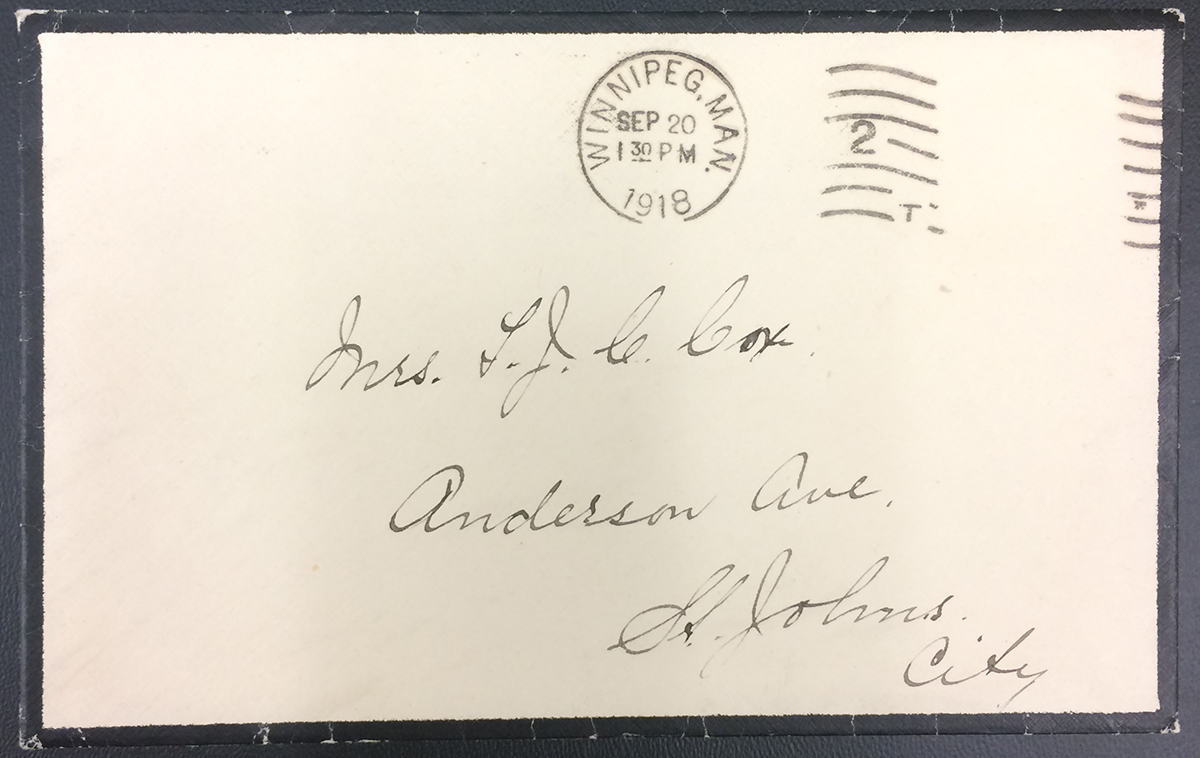 WINNIPEG, MAN.
SEP 20
1 30 PM
1918
2
T
Mrs. S. J. C. Cox.
Anderson Ave.
St. Johns.
City